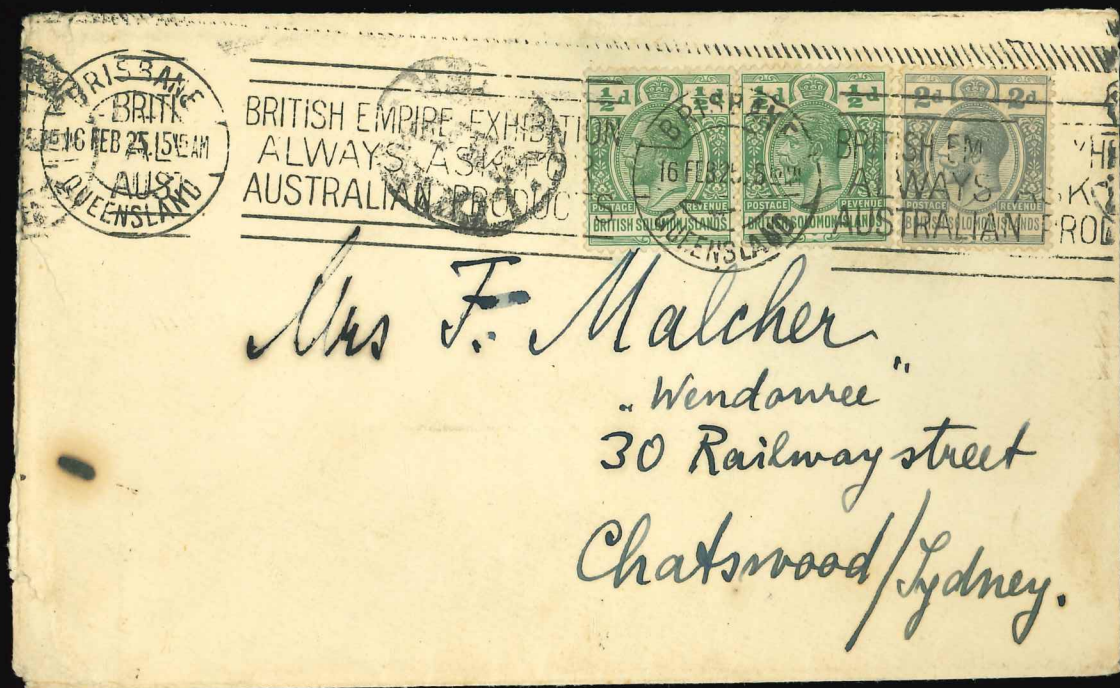 BRISBANE
16 FEB 25 515 AM
QUEENSLAND
BRITI
AUST
BRITISH EMPIRE EXHIBITION
ALWAYS ASK FO
AUSTRALIAN PRODUCTS
½d ½d
POSTAGE REVENUE
BRITISH SOLOMON ISLANDS
½d ½d
POSTAGE REVENUE
BRITISH SOLOMON ISLANDS
2d 2d
POSTAGE REVENUE
BRITISH SOLOMON ISLANDS
BRISBANE
16 FEB 25
QUEENSLAND
BRITISH EM
ALWAYS ASK
AUSTRALIAN PROD
Mrs F. Malcher
„Wendouree"
30 Railway street
Chatswood/Sydney.